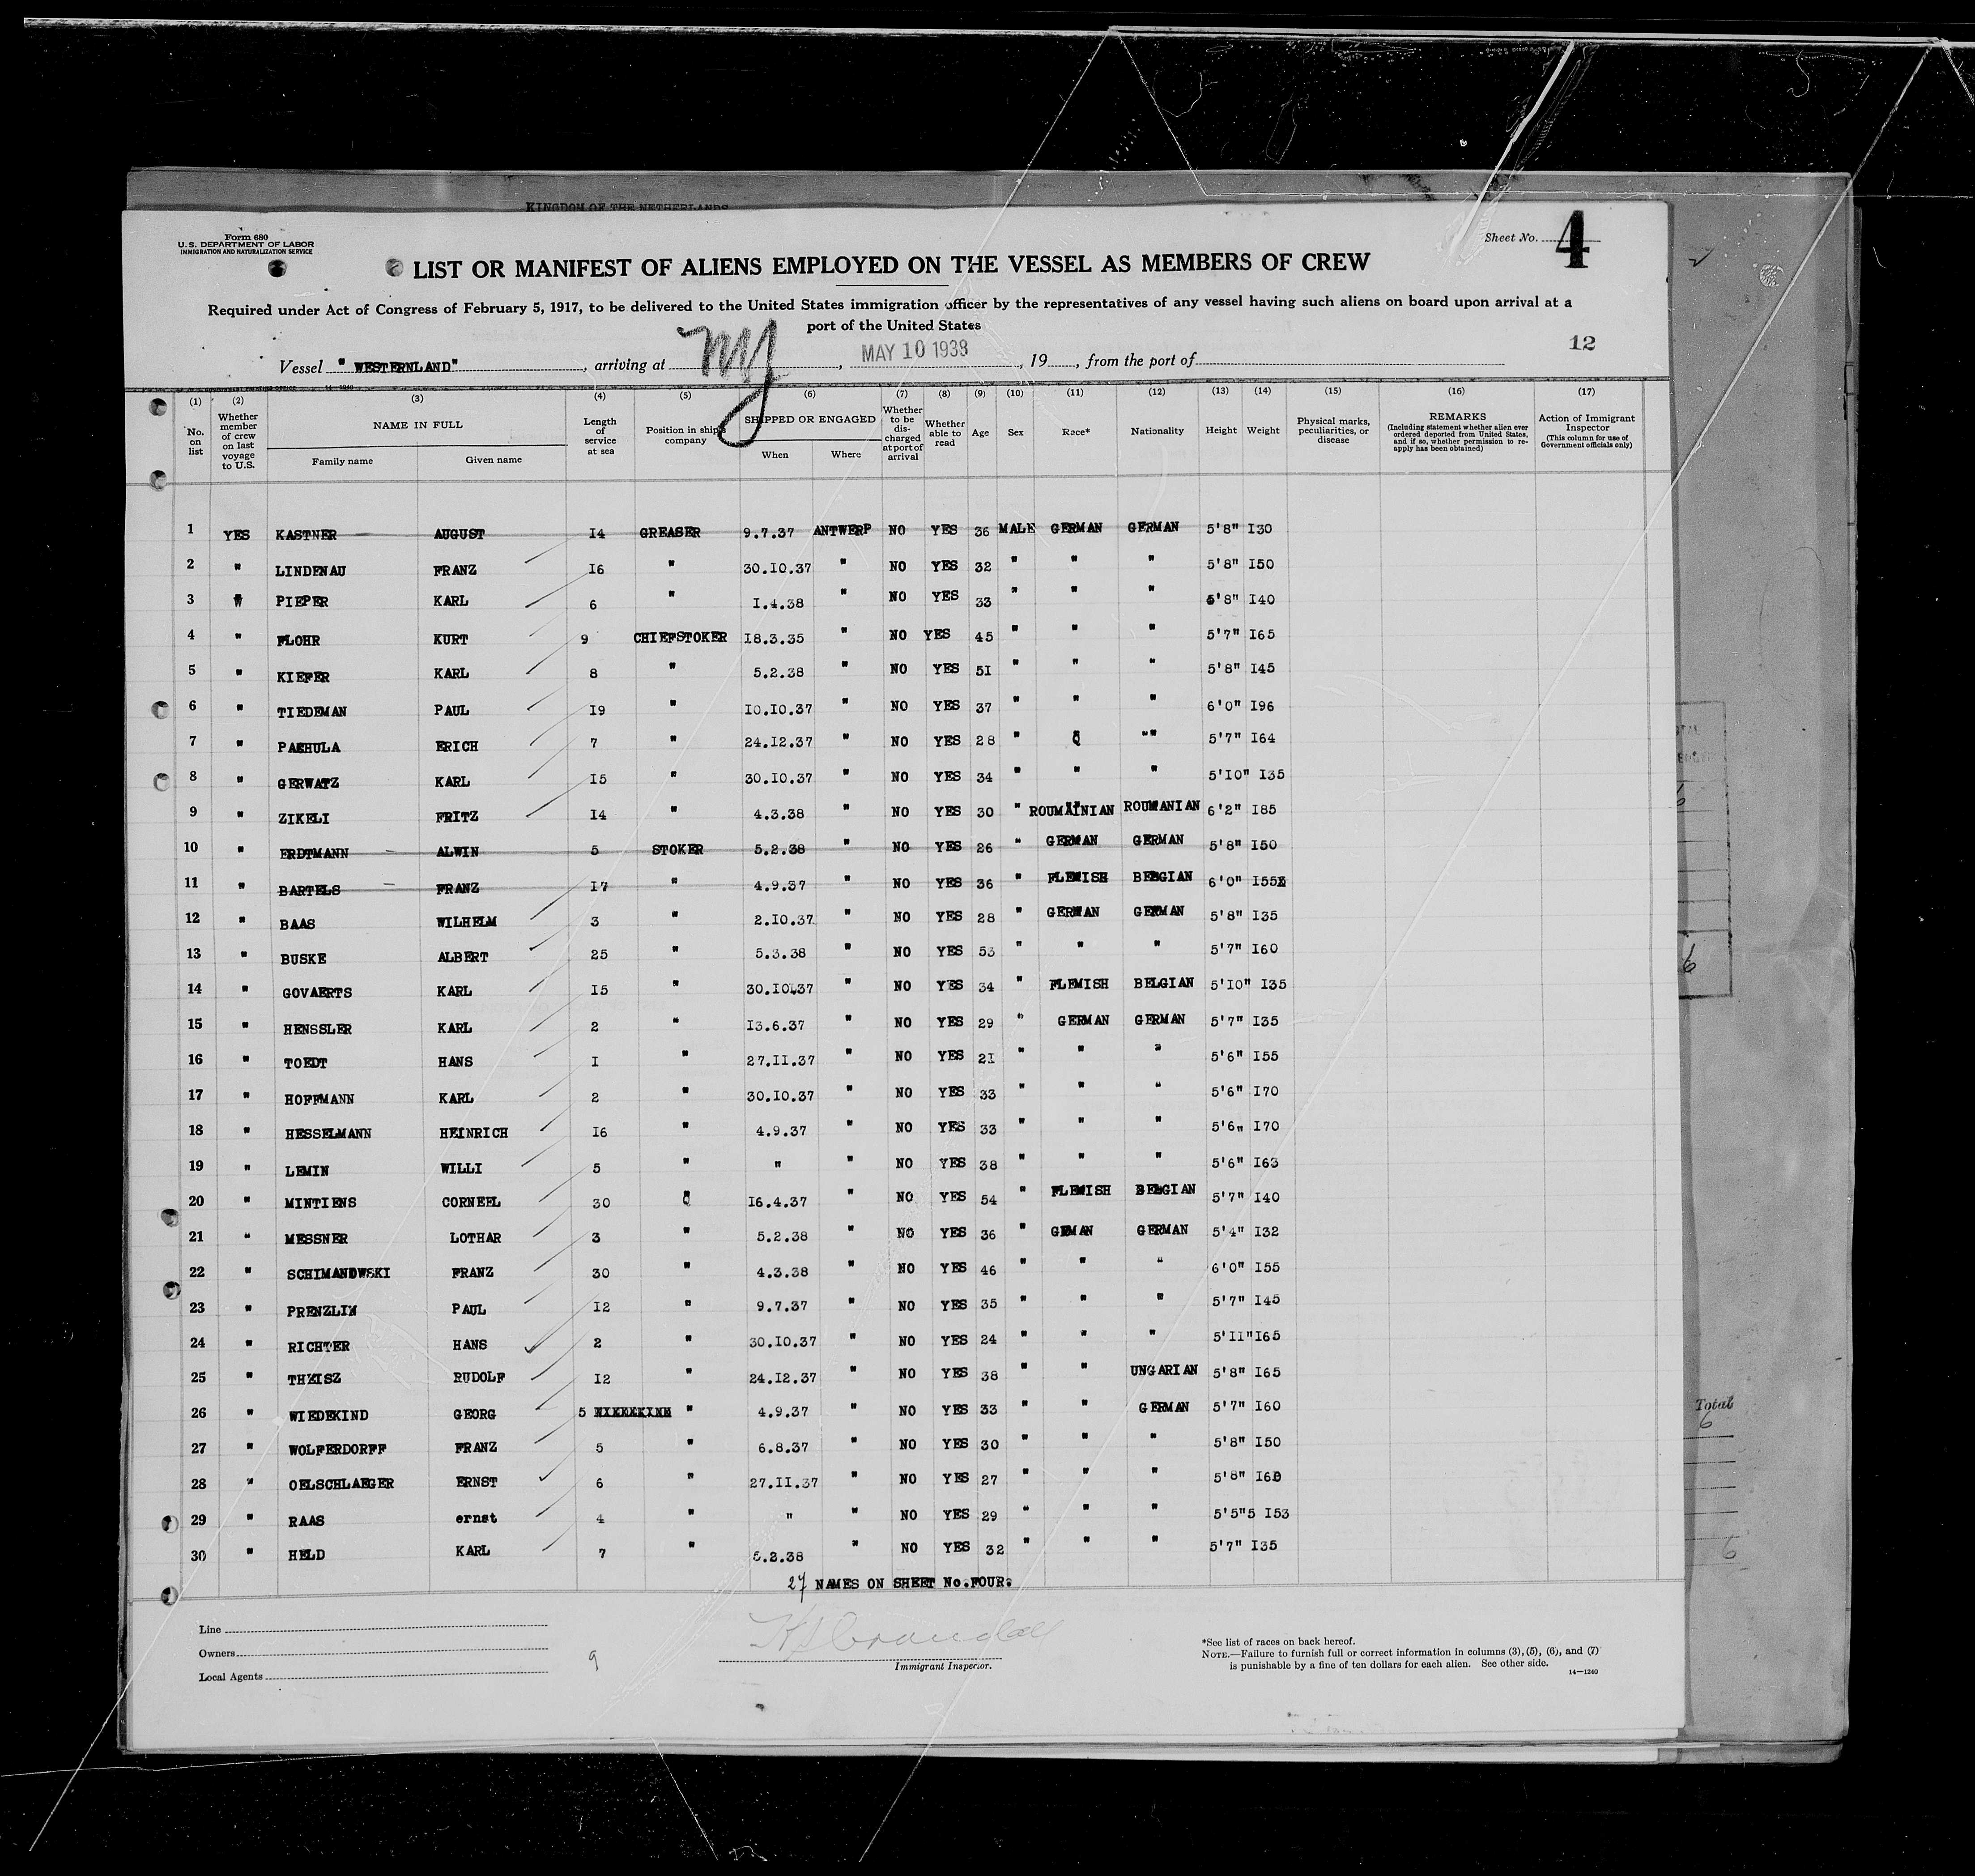 KINGDOM OF THE NETHERLANDS
Form 680
U. S. DEPARTMENT OF LABOR
IMMIGRATION AND NATURALIZATION SERVICE
Sheet No. 4
LIST OR MANIFEST OF ALIENS EMPLOYED ON THE VESSEL AS MEMBERS OF CREW
Required under Act of Congress of February 5, 1917, to be delivered to the United States immigration officer by the representatives of any vessel having such aliens on board upon arrival at a
port of the United States
12
Vessel "WESTERNLAND", arriving at NY, MAY 10 1938, 19, from the port of
(1) (2) (3) (4) (5) (6) (7) (8) (9) (10) (11) (12) (13) (14) (15) (16) (17)
No. on list
Whether member of crew on last voyage to U.S.
NAME IN FULL
Family name Given name
Length of service at sea
Position in ship's company
SHIPPED OR ENGAGED
When Where
Whether to be discharged at port of arrival
Whether able to read
Age
Sex
Race*
Nationality
Height
Weight
Physical marks, peculiarities, or disease
REMARKS
(Including statement whether alien ever ordered deported from United States, and if so, whether permission to reapply has been obtained)
Action of Immigrant Inspector
(This column for use of Government officials only)
1 YES KASTNER AUGUST I4 GREASER 9.7.37 ANTWERP NO YES 36 MALE GERMAN GERMAN 5'8" I30
2 " LINDENAU FRANZ I6 " 30.I0.37 " NO YES 32 " " " 5'8" I50
3 " PIEPER KARL 6 " I.4.38 " NO YES 33 " " " 5'8" I40
4 " FLOHR KURT 9 CHIEFSTOKER I8.3.35 " NO YES 45 " " " 5'7" I65
5 " KIEFER KARL 8 " 5.2.38 " NO YES 5I " " " 5'8" I45
6 " TIEDEMAN PAUL I9 " I0.I0.37 " NO YES 37 " " " 6'0" I96
7 " PAEHULA ERICH 7 " 24.I2.37 " NO YES 28 " " "" 5'7" I64
8 " GERWATZ KARL I5 " 30.I0.37 " NO YES 34 " " " 5'I0" I35
9 " ZIKELI FRITZ I4 " 4.3.38 " NO YES 30 " ROUMAINIAN ROUMANIAN 6'2" I85
10 " ERDTMANN ALWIN 5 STOKER 5.2.38 " NO YES 26 " GERMAN GERMAN 5'8" I50
11 " BARTELS FRANZ I7 " 4.9.37 " NO YES 36 " FLEMISH BELGIAN 6'0" I55
12 " BAAS WILHELM 3 " 2.I0.37 " NO YES 28 " GERMAN GERMAN 5'8" I35
13 " BUSKE ALBERT 25 " 5.3.38 " NO YES 53 " " " 5'7" I60
14 " GOVAERTS KARL I5 " 30.I0.37 " NO YES 34 " FLEMISH BELGIAN 5'I0" I35
15 " HENSSLER KARL 2 " I3.6.37 " NO YES 29 " GERMAN GERMAN 5'7" I35
16 " TOEDT HANS I " 27.II.37 " NO YES 2I " " " 5'6" I55
17 " HOFFMANN KARL 2 " 30.I0.37 " NO YES 33 " " 5'6" I70
18 " HESSELMANN HEINRICH I6 " 4.9.37 " NO YES 33 " " " 5'6" I70
19 " LEMIN WILLI 5 " " " NO YES 38 " " " 5'6" I63
20 " MINTIENS CORNEEL 30 " I6.4.37 " NO YES 54 " FLEMISH BELGIAN 5'7" I40
21 " MESSNER LOTHAR 3 " 5.2.38 " NO YES 36 " GEMAN GERMAN 5'4" I32
22 " SCHIMANOWSKI FRANZ 30 " 4.3.38 " NO YES 46 " " " 6'0" I55
23 " PRENZLIN PAUL I2 " 9.7.37 " NO YES 35 " " " 5'7" I45
24 " RICHTER HANS 2 " 30.I0.37 " NO YES 24 " " " 5'II" I65
25 " THEISZ RUDOLF I2 " 24.I2.37 " NO YES 38 " " UNGARIAN 5'8" I65
26 " WIEDEKIND GEORG 5 " 4.9.37 " NO YES 33 " " GERMAN 5'7" I60
27 " WOLFERDORFF FRANZ 5 " 6.8.37 " NO YES 30 " " " 5'8" I50
28 " OELSCHLAEGER ERNST 6 " 27.II.37 " NO YES 27 " " " 5'8" I60
29 " RAAS ernst 4 " " " NO YES 29 " " " 5'5"5 I53
30 " HELD KARL 7 " 5.2.38 " NO YES 32 " " " 5'7" I35
27 NAMES ON SHEET No.FOUR.
Line
Owners
Local Agents
9
Immigrant Inspector.
*See list of races on back hereof.
NOTE.—Failure to furnish full or correct information in columns (3), (5), (6), and (7)
is punishable by a fine of ten dollars for each alien. See other side.
14—1240
Total
6
6